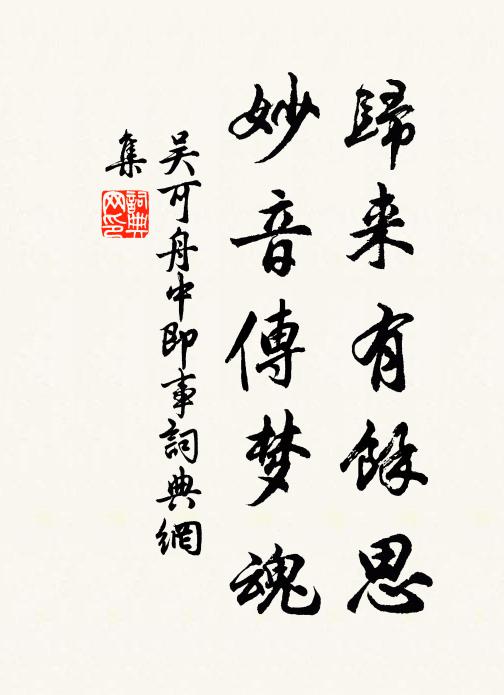 歸来有餘思
妙音傳梦魂
吴可舟中即事詞典網
集
詞典
网印